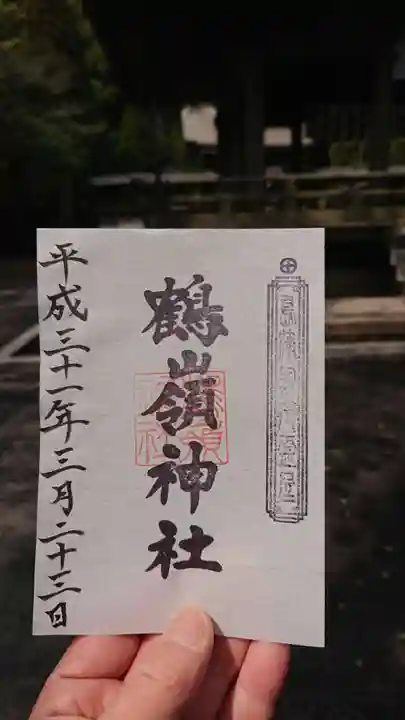 鶴嶺神社
平成三十一年三月二十三日